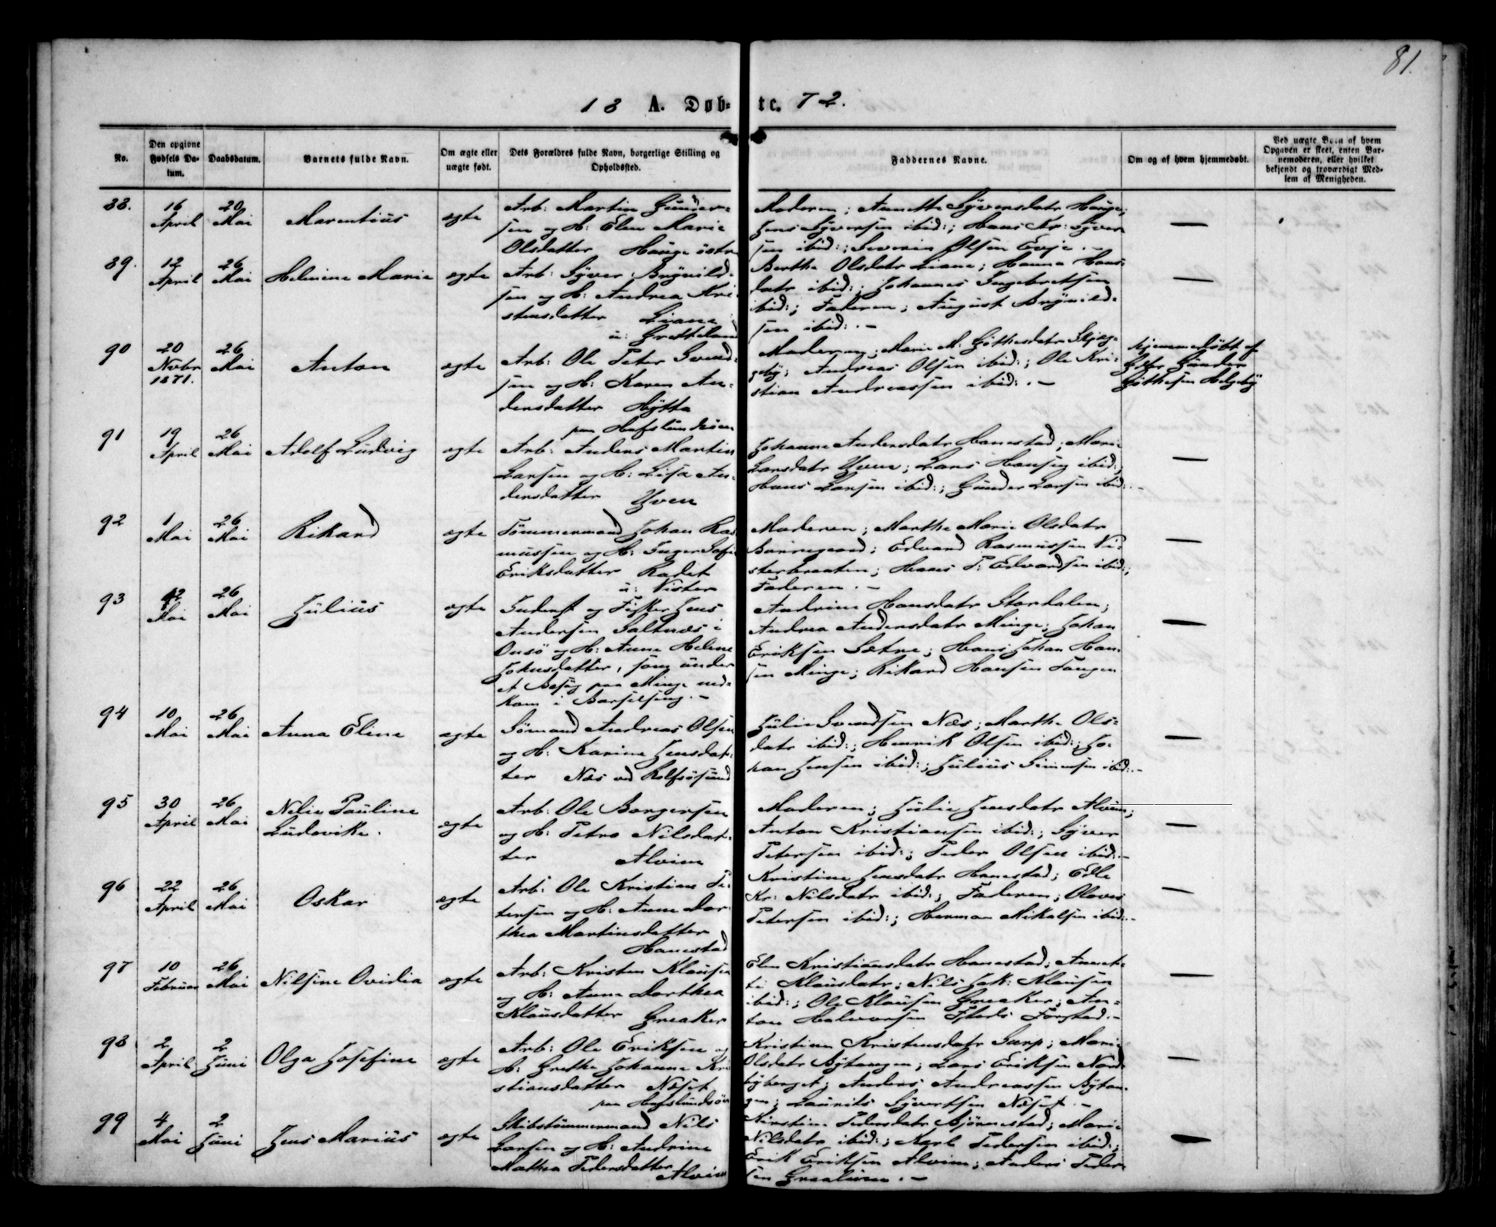 81.
18 A. Døb- te. 72.
No.
Den opgivne Fødsels Datum.
Daabsdatum.
Barnets fulde Navn.
Om ægte eller uægte født.
Dets Forældres fulde Navn, borgerlige Stilling og Opholdssted.
Faddernes Navne.
Om og af hvem hjemmedøbt.
Ved uægte Børn af hvem Opgaven er skeet, enten Barnemoderen, eller hvilket bekjendt og troværdigt Medlem af Menigheden.
88. 16 April 20 Mai Marentius ægte
Arb: Martin Gunder-
sen og H: Elen Marie
Olsdatter Hauge østre
Moderen; Annette Syversdatr Hauge;
Jens Syversen ibid:; Hans Kr: Syver
sen ibid:; Severin Olsen Evje. -
89. 12 April 26 Mai Helmine Marie ægte
Arb: Syver Brynild-
sen og H: Andrea Kri-
stensdatter Liane
u: Grotteland
Berthe Olsdatr Liane; Hanna Hans
datr ibid:; Johannes Ingebretsen
ibid:; Faderen; August Brynild-
sen ibid:. -
90 20 Novbr 1871. 26 Mai Anton ægte
Arb: Ole Peter Svend-
sen og H: Karen An-
densdatter Hytta
paa Hafslundsøen
Moderen; Marie M. Gøthesdatr
Andreas Olsen ibid:; Ole Kri-
stian Andreassen ibid:. -
Hjemmedøbt af
Gunder
Gøthesen Helgeby
91 19 April 26 Mai Adolf Ludvig ægte
Arb: Anders Martin
Larsen og H: Lisa An-
densdatter Yven
Johanne Andersdatr Hanestad; Mari-
Larsdatr Yven; Lars Hansen ibid:;
Hans Larsen ibid:; Gunder Larsen ibid:. -
92 1 Mai 26 Mai Rikard ægte
Tømmermand Johan Ras
mussen og H: Inger Sofie
Eriksdatter Rødet
u: Vister
Moderen; Marthe Marie Olsdatr
Borregaard; Edvard Rasmussen Vi-
sterbraaten; Hans T. Edvardsen ibid:;
Faderen. -
93 12 Mai 26 Mai Julius ægte
Inderst og Fisker Jens
Andersen Saltnæs i
Onsø og H: Anne Helene
Johnsdatter, som under
et Besøg paa Minge ned-
kom i Barselseng. -
Andrine Hansdatr Stordalen;
Andrea Andersdatr Minge; Johan
Eriksen Sætre; Hans Johan Han
sen Minge; Rikard Hansen Tangen
94 10 Mai 26 Mai Anna Elene ægte
Sømand Andreas Olsen
og H: Karine Jensdat-
ter Næs ved Rolfsøsund
Julie Svendsen Næs; Marthe Ols-
datr ibid:; Henrik Olsen ibid:; Jo-
han Jensen ibid:; Julius Simensen ibid:. -
95 30 April 26 Mai Nelie Pauline
Ludovike. ægte
Arb: Ole Borgersen
og H: Petra Nilsdat-
ter Alvim
Moderen; Julie Jensdatr Alvim;
Anton Kristiansen ibid:; Syver
Petersen ibid:; Peder Olsen ibid:. -
96 22 April 26 Mai Oskar ægte
Arb: Ole Kristian Pe-
tersen og H: Anne Dor-
thea Martinsdatter
Hanestad
Kristine Jensdatr Hanestad; Edle
Kr: Nilsdatr ibid:; Faderen; Olaves
Petersen ibid:; Herman Mikalsen ibid:. -
97 10 Februar 26 Mai Nilsine Ovidia ægte
Arb: Kristen Klausen
og H: Anne Dorthea
Klausdatter Greaker
Elen Kristiansdatr Hanestad; Anet-
te Klausdatr; Nils Jak: Klausen
ibid:; Ole Klausen Greaker; An-
ton Halvorsen
98 2 April 2 Juni Olga Josefine ægte
Arb: Ole Eriksen og
H: Grethe Johanne Kri
stiansdatter Næset
paa Hafslundsøen
Kristine Kristensdatr Sarp; Marie
Olsdatr Bytangen; Lars Eriksen Nord
byberget; Anders Andreassen Bytan-
gen; Laurits Syvertsen Næset. -
99 4 Mai 2 Juni Jens Marius ægte
Skibstømmermand Nils
Larsen og H: Andrine
Mathea Pedersdatter
Alvim
Kirstine Pedersdatr Bjørnestad; Marie
Nilsdatr ibid:; Karl Pedersen ibid:;
Erik Eriksen Alvim; Anders Peder
sen Graalum. -